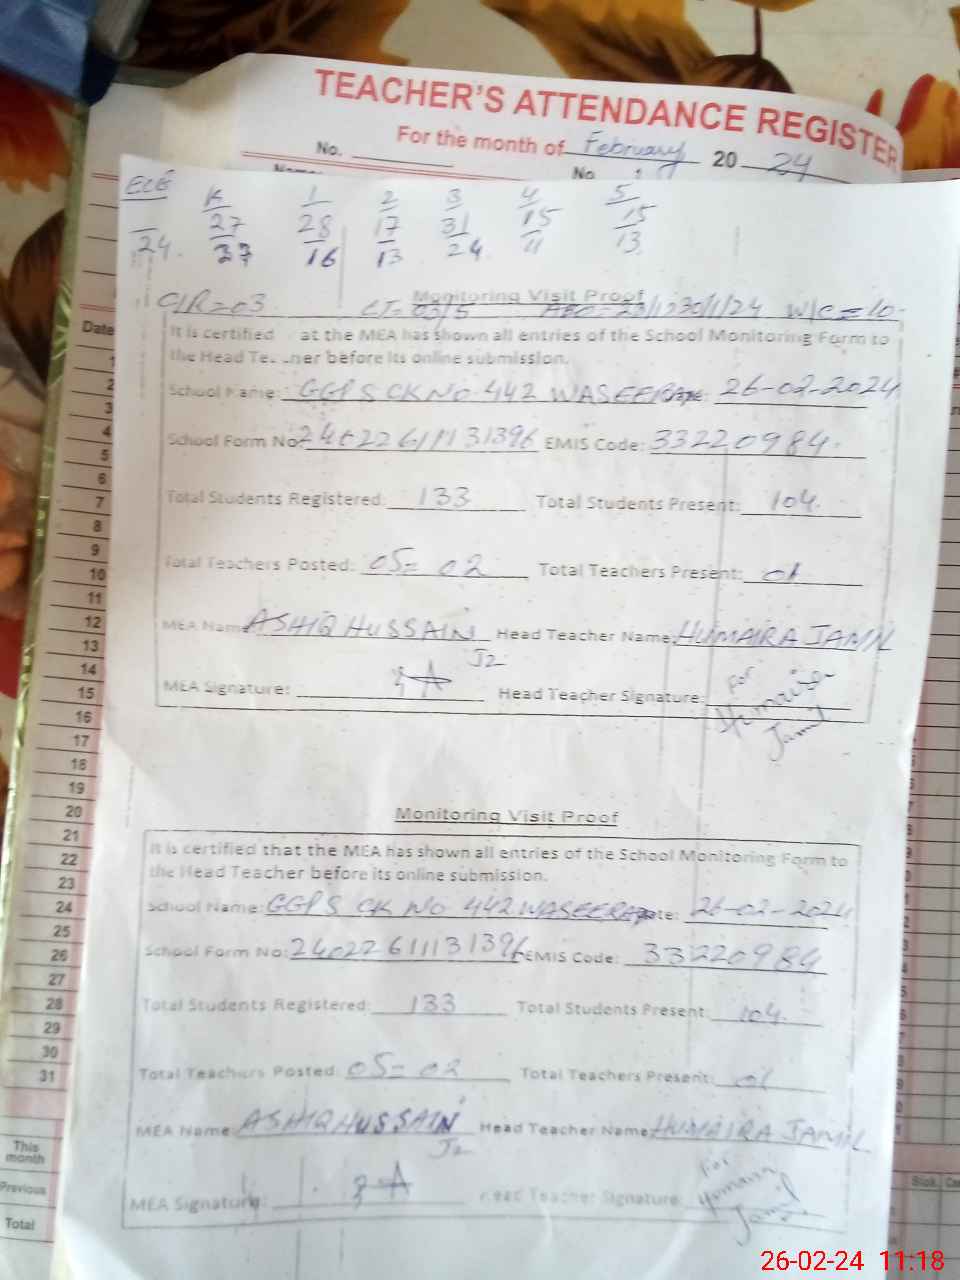 TEACHER'S ATTENDANCE REGISTER
For the month of February 20 24
No. No. 1
ECE K 1 2 3 4 5
27 28 17 31 15 15
24. 37 16 13 24. 11 13
Monitoring Visit Proof
CIR=03 W/C=10
It is certified at the MEA has shown all entries of the School Monitoring Form to
the Head Te ner before its online submission.
School Name: GGPS CK No. 442 WASEERA 26-02-2024
School Form No: EMIS Code: 33220984.
Total Students Registered: 133 Total Students Present: 104.
Total Teachers Posted: 05= 02 Total Teachers Present: 01
MEA Name ASHIQ HUSSAIN Head Teacher Name: HUMAIRA JAMIL
J2
MEA Signature: Head Teacher Signature: For
Humaira
Jamil
Monitoring Visit Proof
It is certified that the MEA has shown all entries of the School Monitoring Form to
the Head Teacher before its online submission.
School Name: GGPS CK No 442 WASEERA Date: 26-02-2024
School Form No: 24022611131396 EMIS Code: 33220984
Total Students Registered: 133 Total Students Present: 104.
Total Teachers Posted: 05= 02 Total Teachers Present: 01
MEA Name: ASHIQ HUSSAIN Head Teacher Name: HUMAIRA JAMIL
J2
MEA Signature: Head Teacher Signature: For
Jamil
Date
1
2
3
4
5
6
7
8
9
10
11
12
13
14
15
16
17
18
19
20
21
22
23
24
25
26
27
28
29
30
31
This
month
Previous
Total
26-02-24 11:18